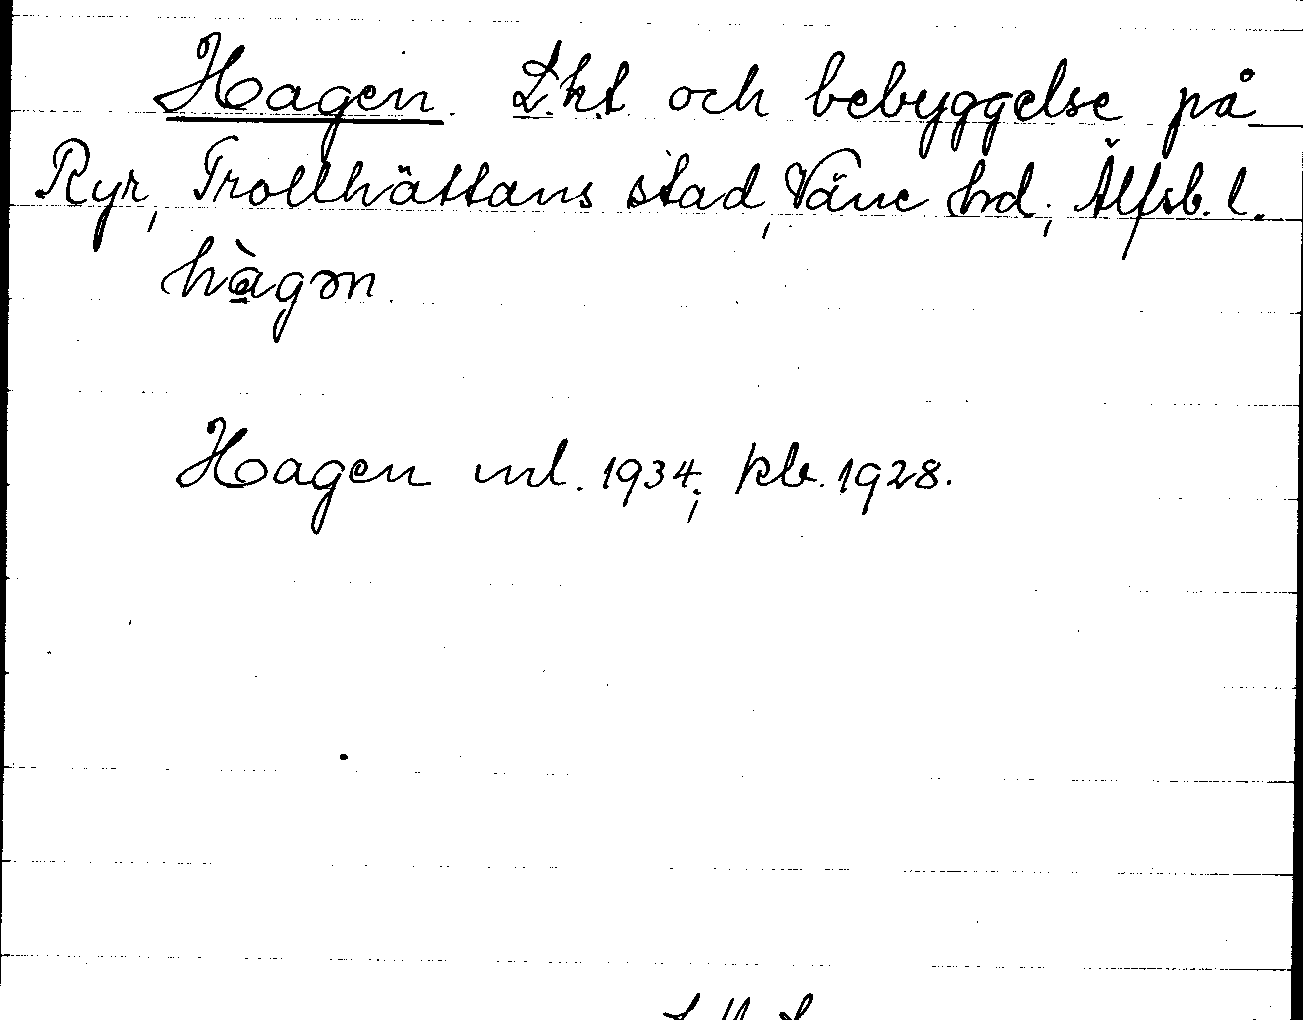 Hagen. Lkt och bebyggelse på
Ryr, Trollhättans stad, Väne hd, Älfsb. l.
hàgən.
Hagen ml. 1934; kb. 1928.